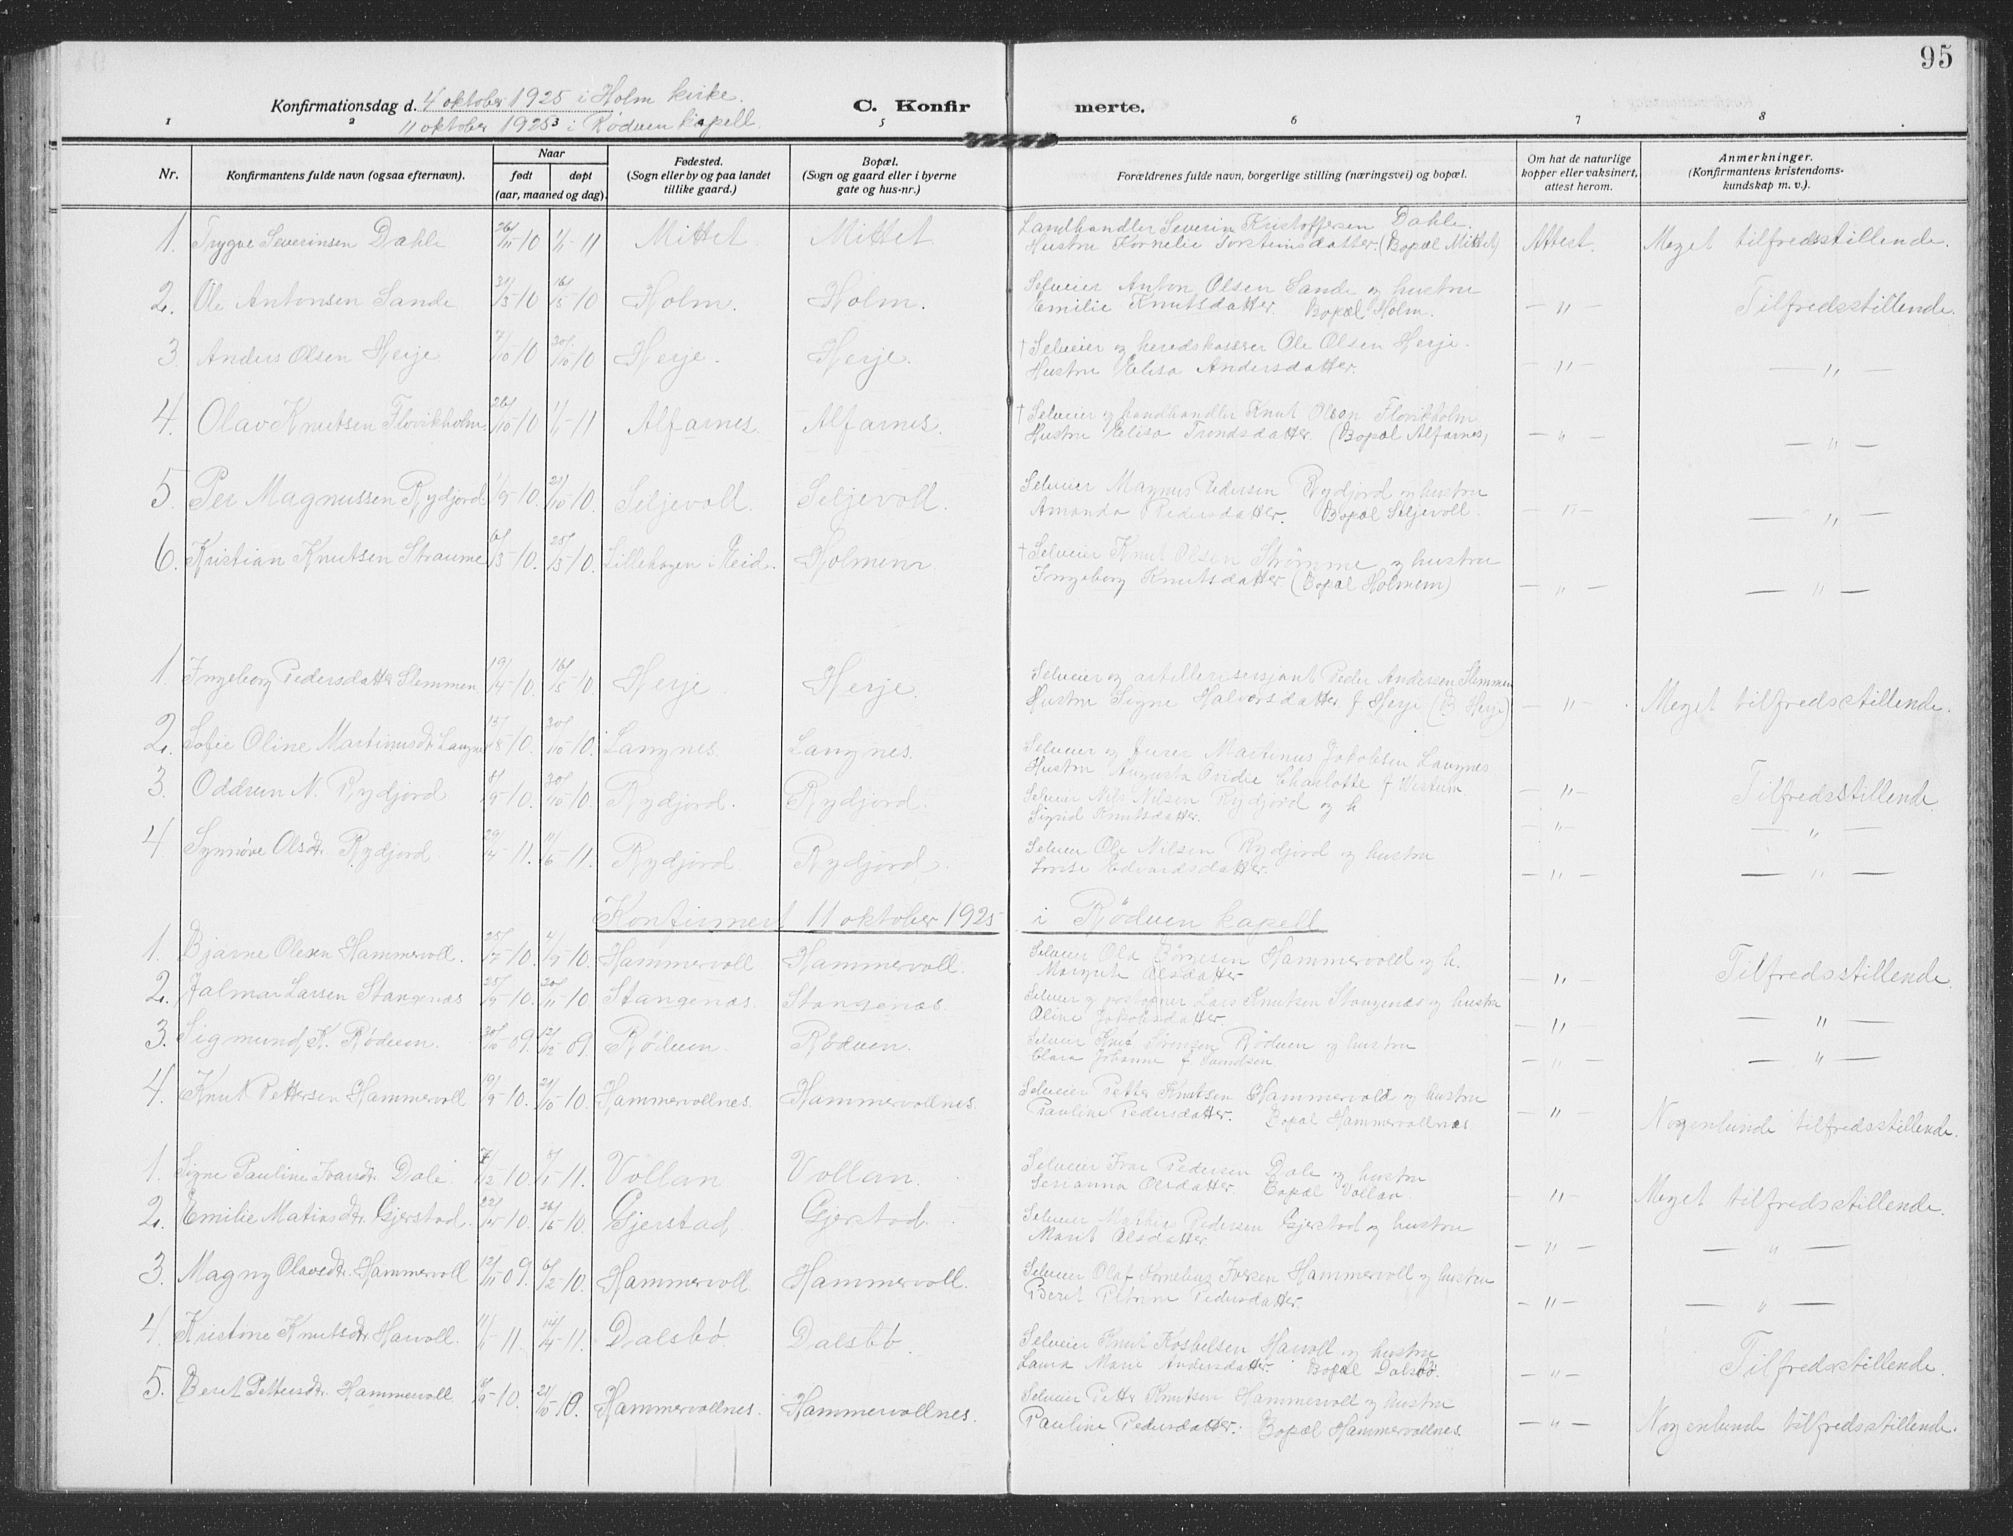 95
Konfirmationsdag d. 4 oktober 1925 i Holm kirke.
11 oktober 1925 i Rødven kapell
C. Konfir merte.
1 2 3 4 5 6 7 8
Nr. Konfirmantens fulde navn (ogsaa efternavn). Naar født døpt (aar, maaned og dag). Fødested. (Sogn eller by og paa landet tillike gaard.) Bopæl. (Sogn og gaard eller i byerne gate og hus-nr.) Forældrenes fulde navn, borgerlige stilling (næringsvei) og bopæl. Om hat de naturlige kopper eller vaksinert, attest herom. Anmerkninger. (Konfirmantens kristendoms- kundskap m. v.).
1. Trygve Severinsen Dahle 26/11-10 1/1-11 Mittet Mittet Landhandler Severin Kristoffersen Dahle.
Hustru Kornelie Torsteinsdatter. (Bopæl Mittet) Attest. Meget tilfredsstillende.
2. Ole Antonsen Sande 31/3-10 16/5-10 Holm. Holm. Selveier Anton Olsen Sande og hustru
Emilie Knutsdatter. Bopæl Holm. — " — Tilfredsstillende.
3 Anders Olsen Herje 7/10-10 30/10-10 Herje. Herje. † Selveier og heredskasserer Ole Olsen Herje.
Hustru Elisa Andersdatter. — " — — " —
4. Olav Knutsen Flovikholm 26/10-10 1/1-11 Alfarnes Alfarnes. † Selveier og handhandler Knut Olson Flovikholm
Hustru Elisa Trondsdatter (Bopæl Alfarnes) — " — — " —
5. Per Magnussen Rydjord 1/9-10. 21/10-10. Seljevoll. Seljevoll. Selveier Magnus Pedersen Rydjord og hustru
Amanda Pedersdatter. Bopæl Seljevoll. — " — — " —
6. Kristian Knutsen Straume 6/3-10. 25/3-10. Lillehagen i Eid. Holmem. † Selveier Knut Olsen Strømme og hustru
Ingeborg Knutsdatter (Bopæl Holmem) — " — — " —
1. Ingeborg Pedersdatter Slemmen 19/4-10. 16/5-10. Herje Herje. Selveier og artillerisersjant Peder Andersen Slemmen
Hustru Signe Halvorsdatter f Herje (B. Herje) — " — Meget tilfredsstillende.
2. Sofie Oline Martinusdtr Langnes 15/8-10. 30/10-10. Langnes Langnes. Selveier og furer Martinus Jakobsen Langnes
Hustru Augusta Ovidie Charlotte f Westum — " — Tilfredsstillende.
3. Oddrun N. Rydjord 8/9-10. 30/10-10. Rydjord. Rydjord. Selveier Nils Nilsen Rydjord og h
Sigrid Knutsdatter. — " — — " —
4 Synnøve Olsdtr Rydjord 29/4-11. 11/6-11. Rydjord Rydjord. Selveier Ole Nilsen Rydjord og hustru
Lovise Edvardsdatter. — " — — " —
Konfirmert 11 oktober 1925 i Rødven kapell
1. Bjarne Olesen Hammervoll. Hammervoll Hammervoll. Selveier Ola Børgesen Hammervold og h.
Margrete Olsdatter — " — Tilfredsstillende.
2. Hjalmar Larsen Stangenæs 25/9-10 20/11-10 Stangenæs. Stangenæs. Selveier og postopner Lars Knutsen Stangenæs og hustru
Oline Jakobsdatter. — " — — " —
3. Sigmund K. Rødven. 30/10-09. 12/12-09. Rødven Rødven. Selveier Knut Rødven og hustru
Clara Johanne f. — " — — " —
4. Knut Pettersen Hammervoll 19/9-10. 21/10-10. Hammervollnes. Hammervollnes. Selveier Petter Knutsen Hammervold og hustru
Pauline Pedersdatter. Bopæl Hammervollnæs — " — Nogenlunde tilfredsstillende.
1. Signe Pauline Ivarsdtr Dale. 7/12-10. 8/1-11. Vollan Vollan. Selveier Ivar Pedersen Dale og hustru
Serianna Olsdatter. Bopæl Vollan. — " — Meget tilfredsstillende.
2. Emilie Matiasdtr. Gjerstad. Gjerstad Gjerstad. Selveier Mathias Pedersen Gjerstad og hustru
Marit Olsdatter. — " — — " —
3. Magny Olavsdtr. Hammervoll 12/11-09. 6/2-10. Hammervoll. Hammervoll. Selveier Olaf Kornelius Iversen Hammervoll og hustru
Beret Petrine Pedersdatter. — " — — " —
4. Kristine Knutsdtr Harvoll. 14/4-11. Dalsbø. Dalsbø. Selveier Knut Harvoll og hustru
Laura Marie Andersdatter. Bopæl Dalsbø. — " — Tilfredsstillende.
5. Beret Pettersdtr. Hammervoll 21/10-10. Hammervollnes. Hammervollnes. Selveier Petter Knutsen Hammervoll og hustru
Pauline Pedersdatter. Bopæl Hammervollnes. — " — Nogenlunde tilfredsstillende.